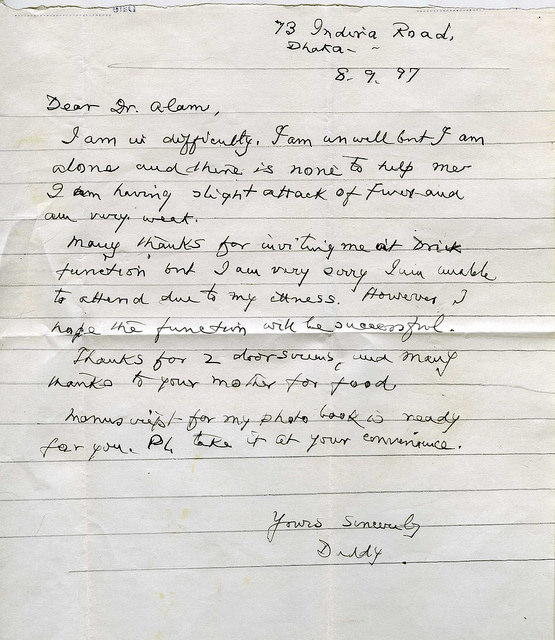 73 Indira Road,
Dhaka-
8.9.97
Dear Dr. Alam,
I am in difficulty. I am unwell but I am
alone and there is none to help me
I am having slight attack of fever and
am very weak.
Many thanks for inviting me at Drik
function but I am very sorry I am unable
to attend due to my illness. However I
hope the function will be successful.
Thanks for 2 and many
thanks to your mother for food
Manuscript for my photo book is ready
for you. Pl. take it at your convenience.
Yours sincerely